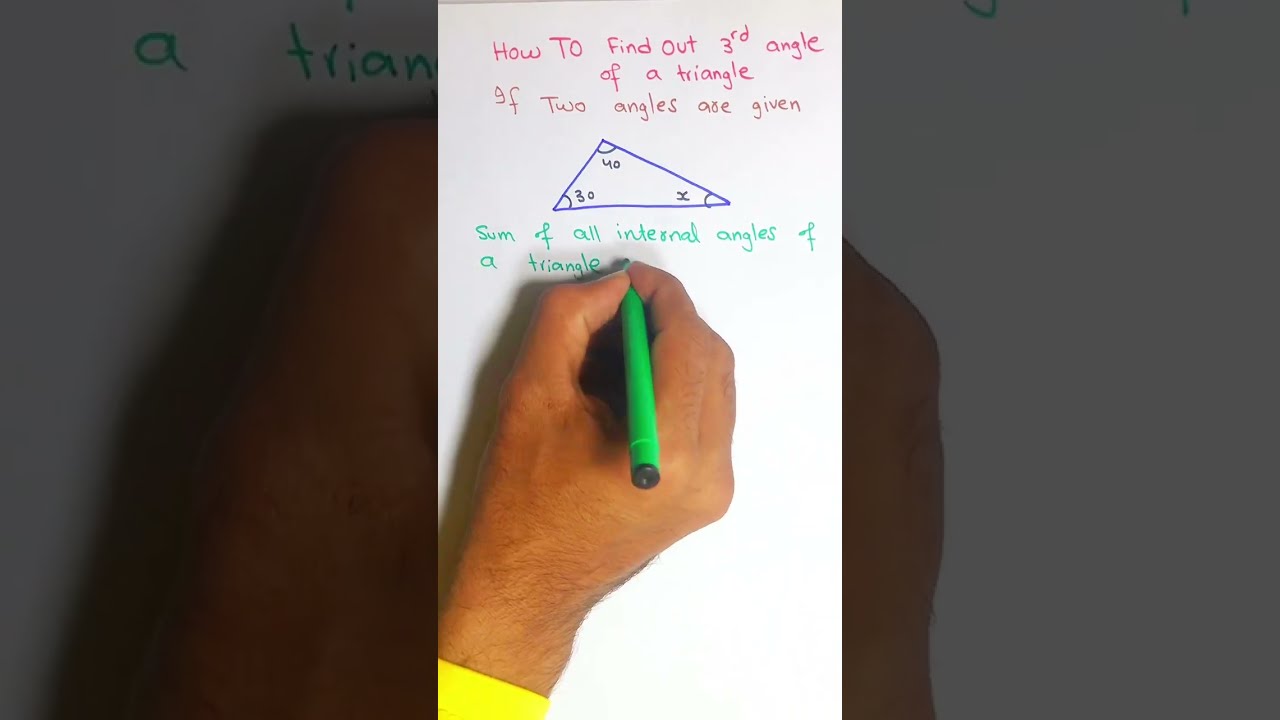 How To Find Out 3rd angle
of a triangle
If Two angles are given
40
30 x
Sum of all internal angles of
a triangle